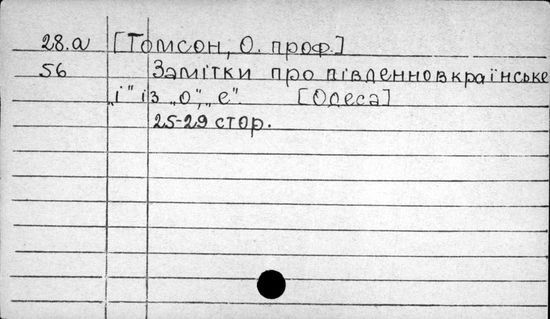 28.а [Томсон, О. проф.]
56 Замітки про південновкраїнське
„і" із „о", „е". [Одеса]
25-29 стор.